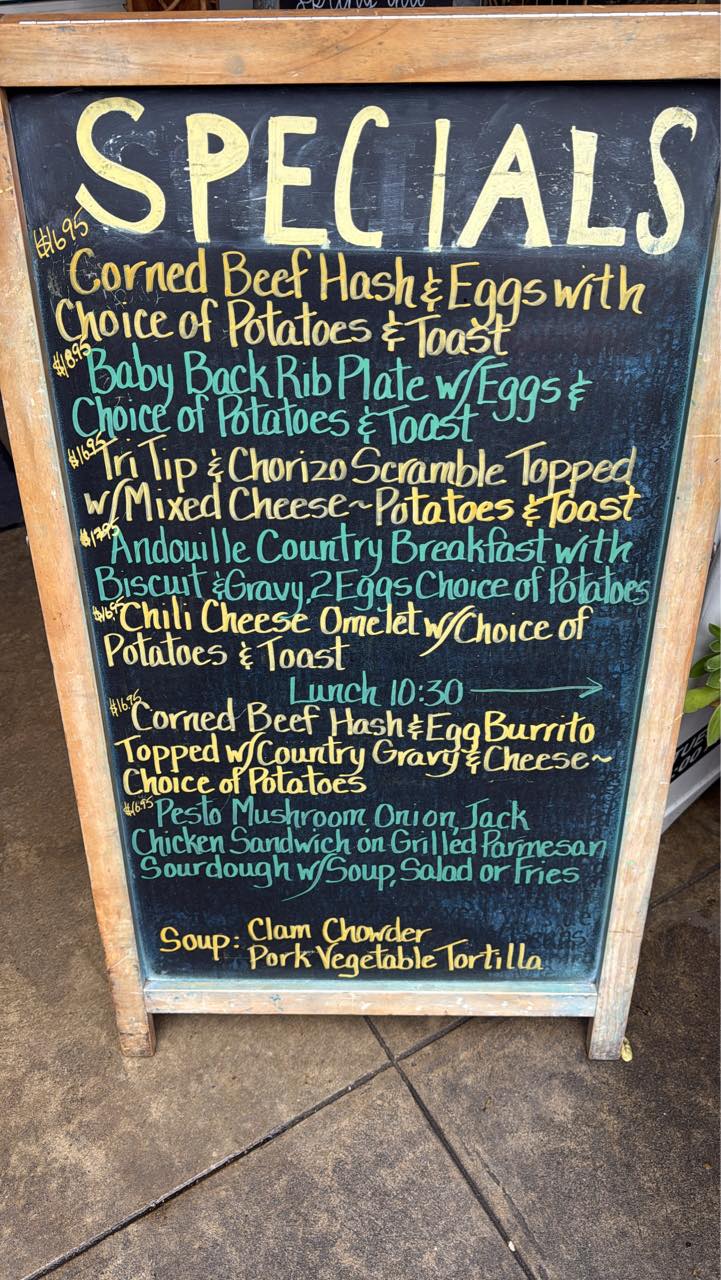 SPECIALS
$16.95
Corned Beef Hash & Eggs with
Choice of Potatoes & Toast
$18.95
Baby Back Rib Plate w/Eggs &
Choice of Potatoes & Toast
$16.95
Tri Tip & Chorizo Scramble Topped
w/Mixed Cheese~Potatoes & Toast
$17.95
Andouille Country Breakfast with
Biscuit & Gravy, 2 Eggs Choice of Potatoes
$16.95
Chili Cheese Omelet w/Choice of
Potatoes & Toast
Lunch 10:30 →
$16.95
Corned Beef Hash & Egg Burrito
Topped w/Country Gravy & Cheese~
Choice of Potatoes
$16.95
Pesto Mushroom Onion, Jack
Chicken Sandwich on Grilled Parmesan
Sourdough w/Soup, Salad or Fries
Soup: Clam Chowder
Pork Vegetable Tortilla